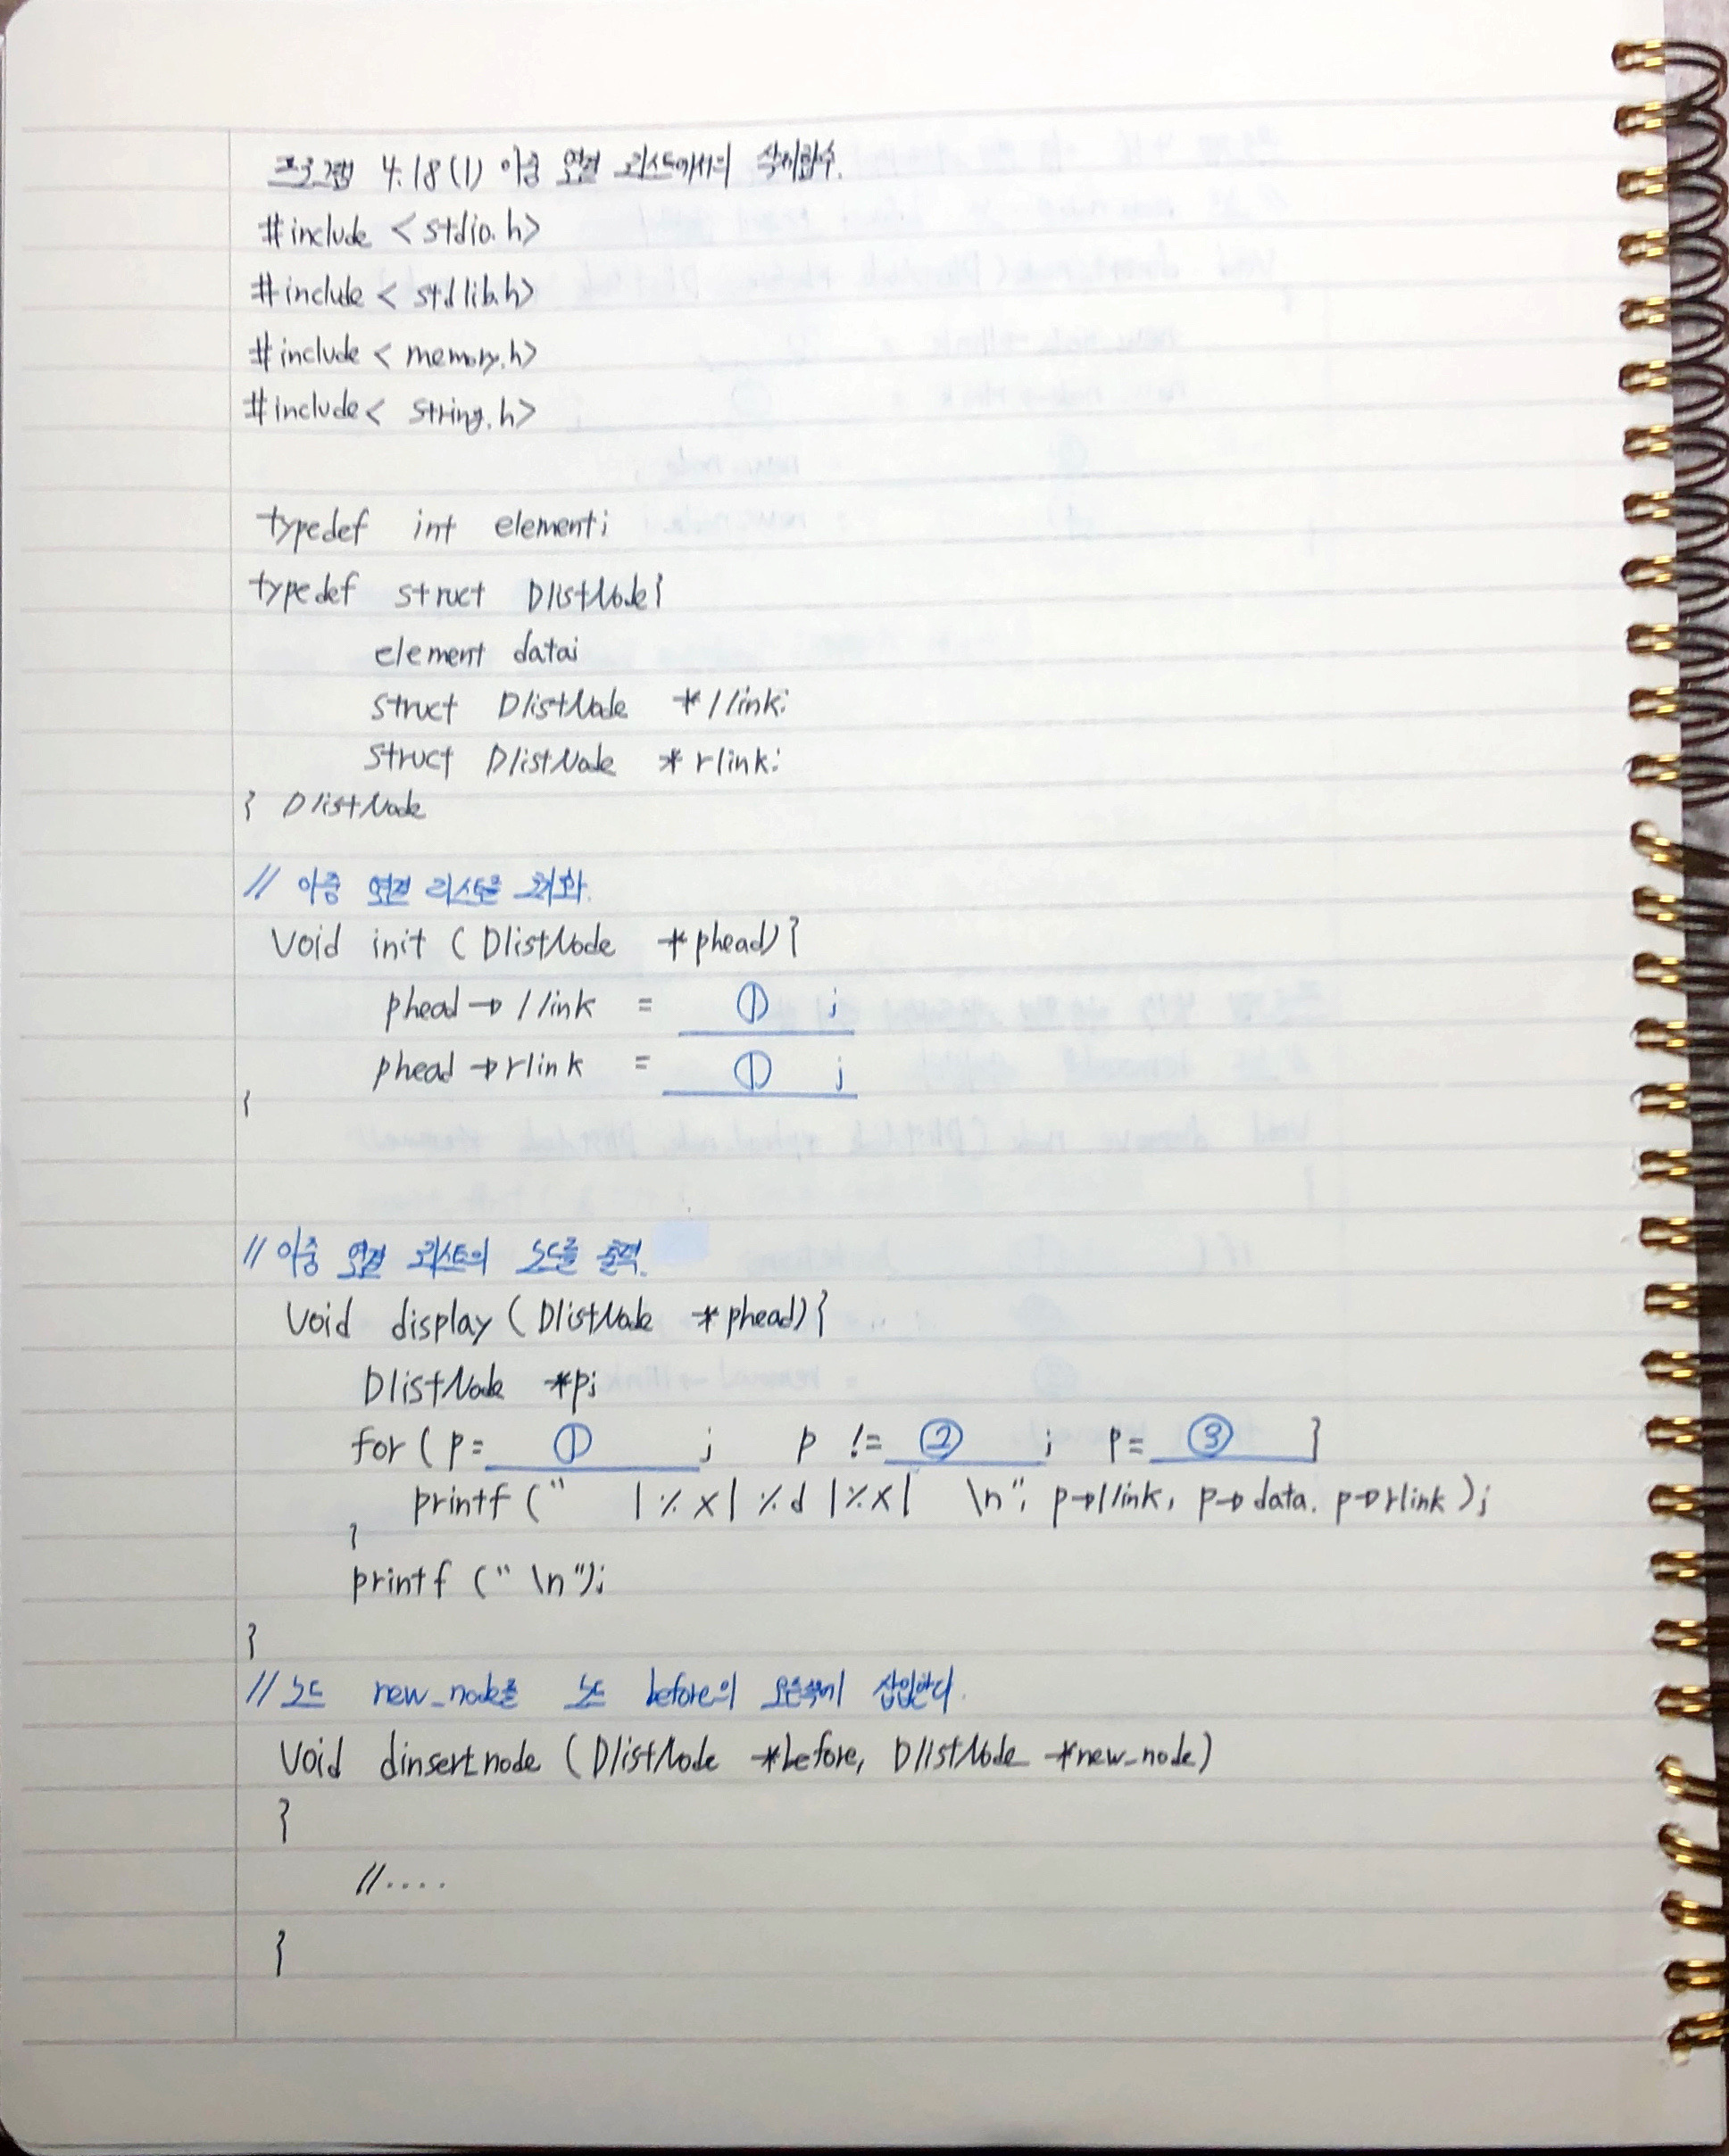 프로그램 4.18(1) 이중 연결 리스트에서의 삭제함수.
#include <stdio.h>
#include < stdlib.h>
#include < memory.h>
#include < string.h>
typedef int element;
typedef struct DlistNode{
element data;
struct DlistNode *llink;
struct DlistNode *rlink;
} DlistNode
// 이중 연결 리스트를
void init (DlistNode *phead){
phead→llink = ① ;
phead→rlink = ① ;
}
// 이중 연결 리스트의 노드를 출력.
void display (DlistNode *phead){
DlistNode *p;
for ( p= ① ; p != ② ; p= ③ }
printf (" |%x| %d |%x| \n", p→llink, p→data. p→rlink );
}
printf (" \n");
}
// 노드 new_node를 노드 before의 오른쪽에 삽입한다.
void dinsert_node (DlistNode *before, DlistNode *new_node)
}
//....
}